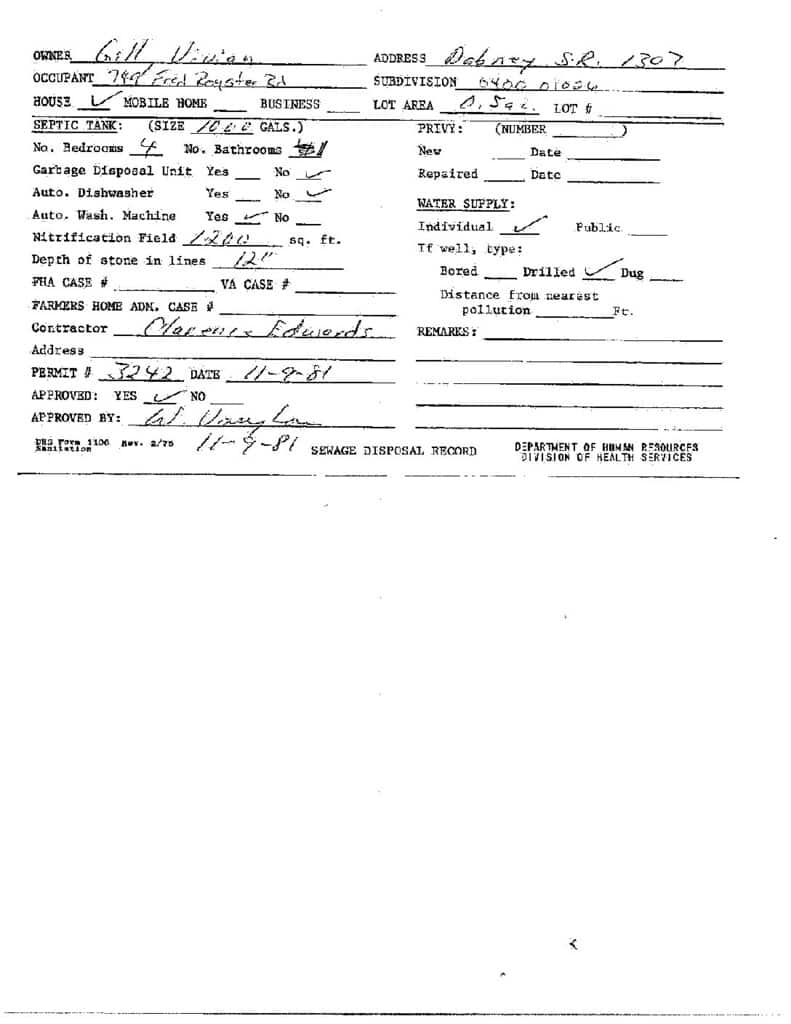 OWNER Gill Vivian ADDRESS Dabney S.R. 1307
OCCUPANT 749 Fred Royster Rd SUBDIVISION 0406 01026
HOUSE ✓ MOBILE HOME ___ BUSINESS ___ LOT AREA 0.5ac. LOT #
SEPTIC TANK: (SIZE 1000 GALS.) PRIVY: (NUMBER ___)
No. Bedrooms 4 No. Bathrooms 1 New ___ Date ___
Garbage Disposal Unit Yes ___ No ✓ Repaired ___ Date ___
Auto. Dishwasher Yes ___ No ✓ WATER SUPPLY:
Auto. Wash. Machine Yes ✓ No ___ Individual ✓ Public ___
Nitrification Field 1200 sq. ft. If well, type:
Depth of stone in lines 12" Bored ___ Drilled ✓ Dug ___
FHA CASE # ___ VA CASE # ___ Distance from nearest
FARMERS HOME ADM. CASE # ___ pollution ___ Ft.
Contractor Clarence Edwards REMARKS:
Address
PERMIT # 3242 DATE 11-9-81
APPROVED: YES ✓ NO ___
APPROVED BY: W. Vaughan
DHS Form 1106 Rev. 2/75 11-9-81 SEWAGE DISPOSAL RECORD DEPARTMENT OF HUMAN RESOURCES
Sanitation DIVISION OF HEALTH SERVICES